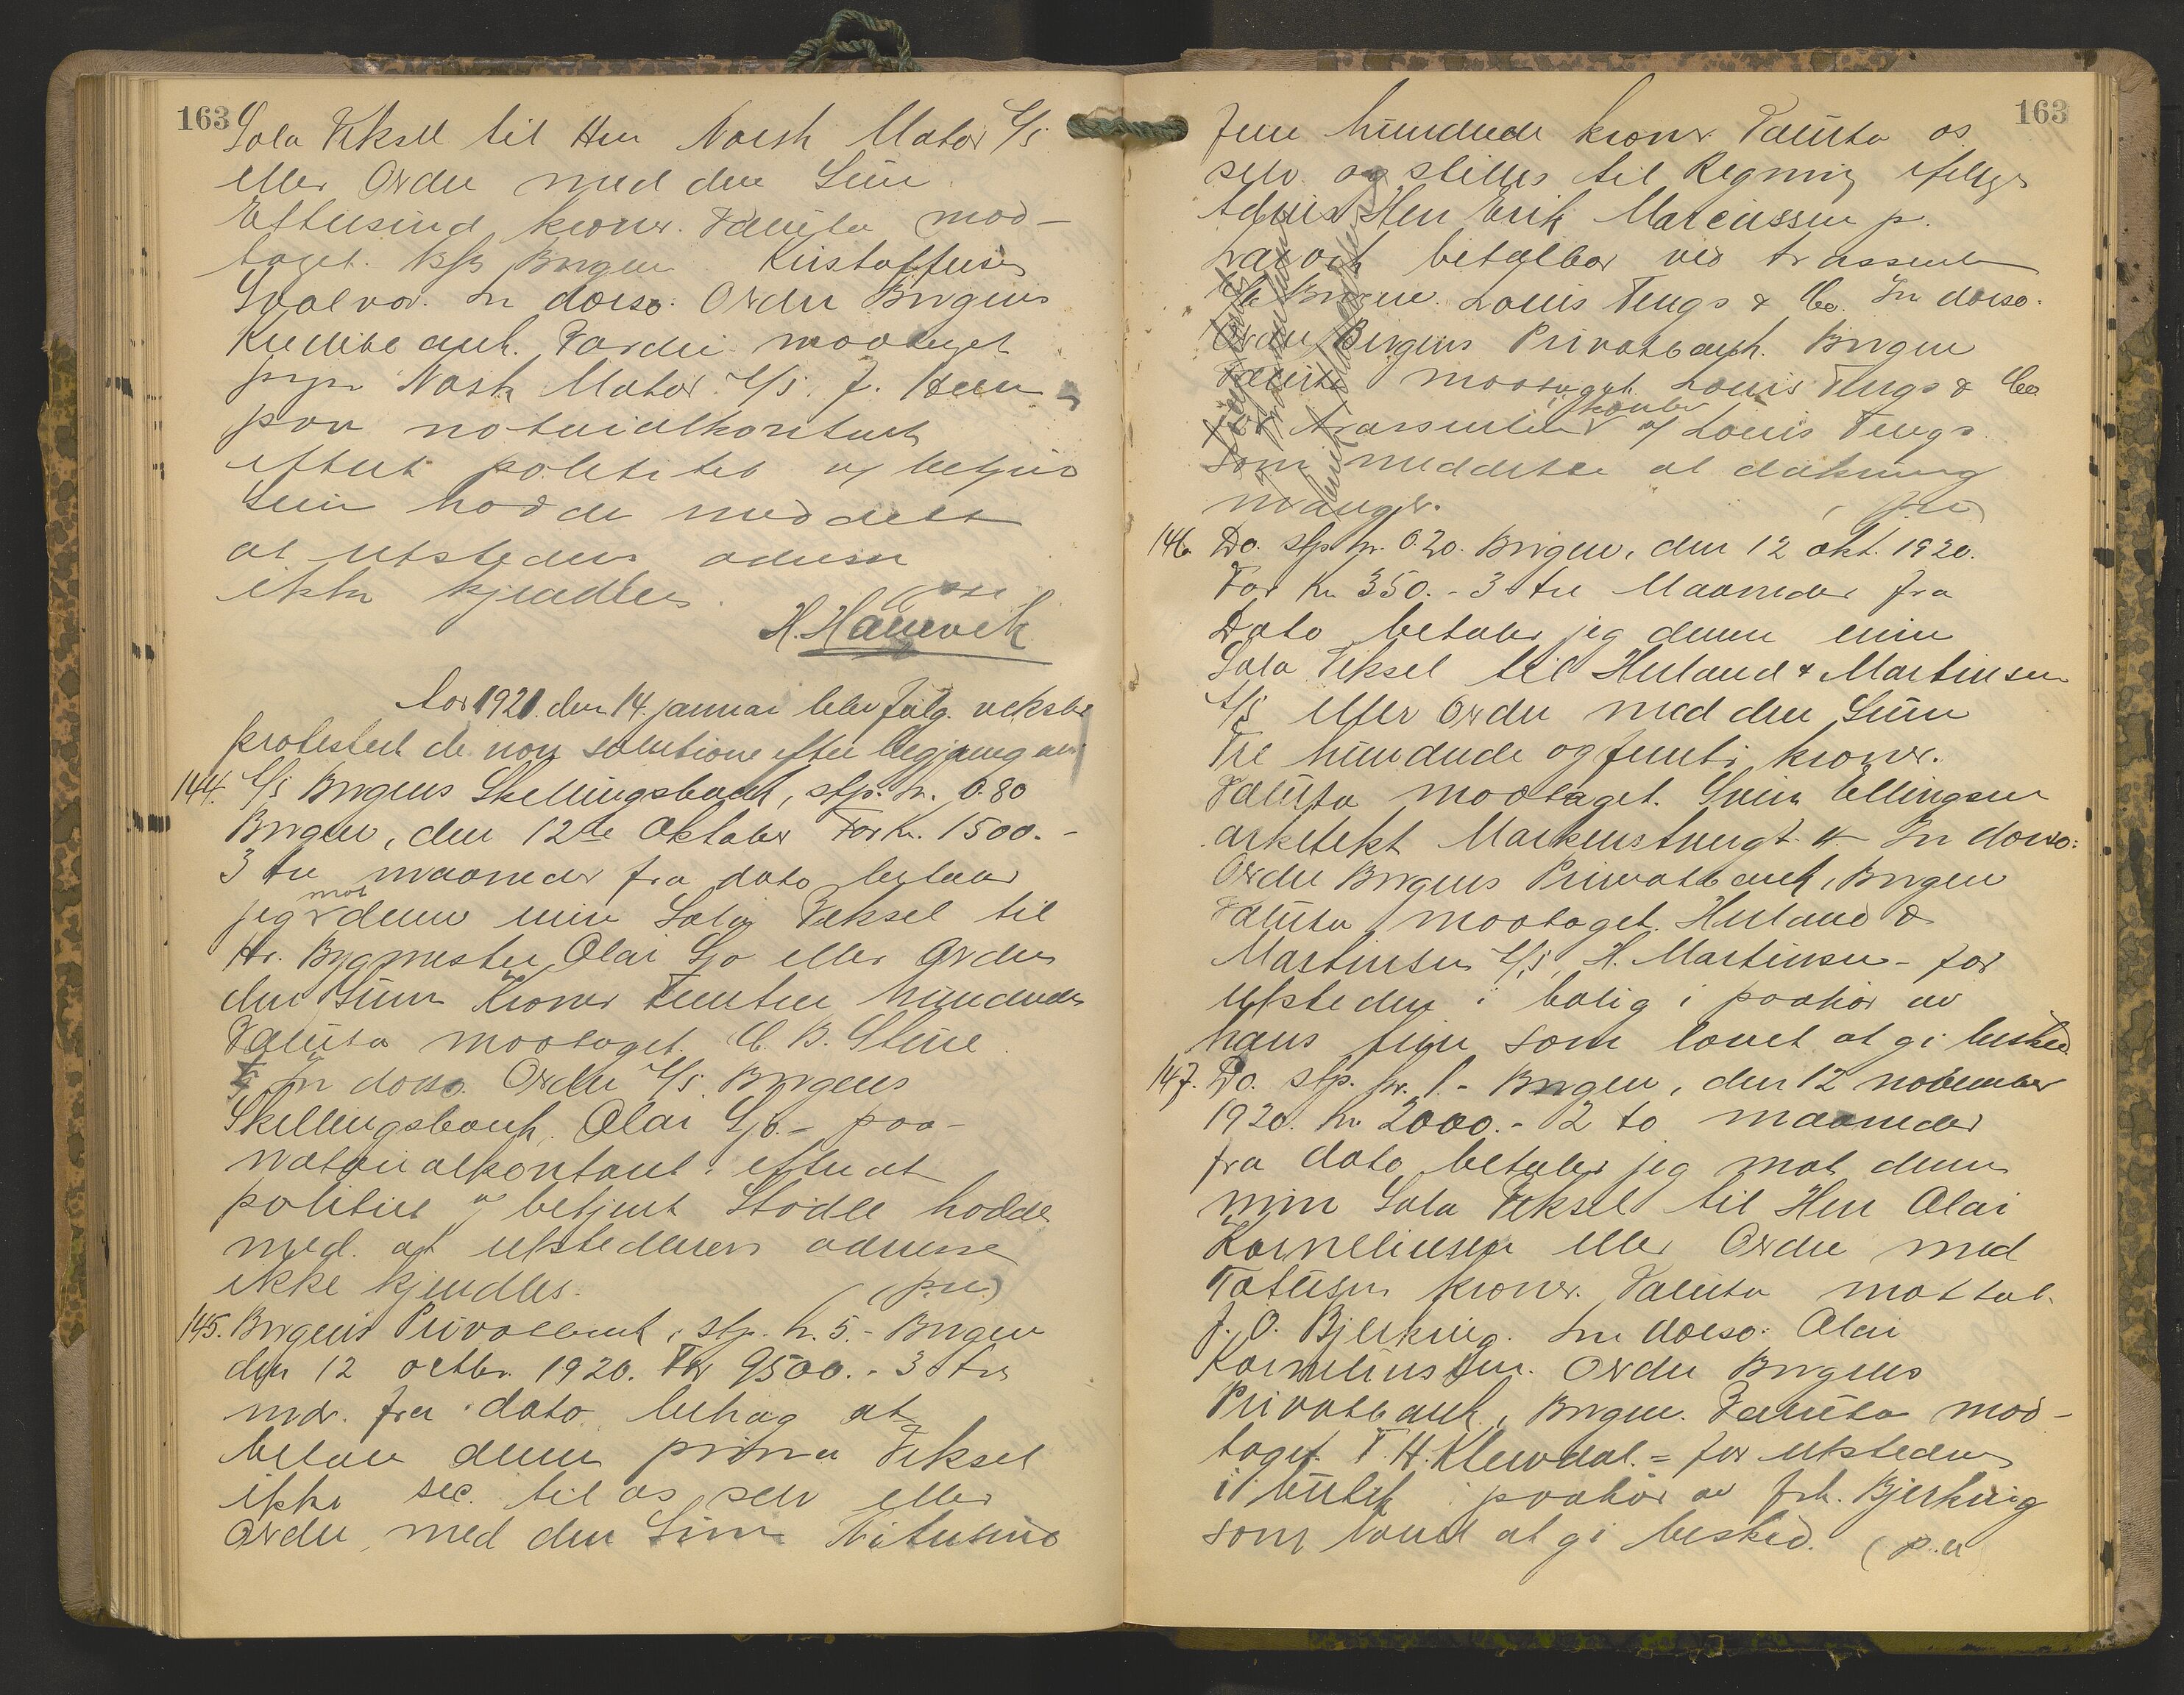 163
Sola Veksel til Herr Norsk Motor A/S
eller Ordre med den Sum
Ettusind kroner. Valuta mod-
taget. Bergen Kristoffersen
In dorso: Ordre Bergens
Kreditbank. Værdi modtaget
Norsk Motor A/S. J. Heen
paa notarialkontoret
efterat politiet v/ betjent
hadde meddelt
at utstederens adresse
ikke kjendtes.
H. Hauevik
Aar 1921. den 14. januar blev følg. veksler
protestert de non solutione efter begjæring av:
144. A/S Bergens Skillingsbank, stp. kr. 0.80
Bergen, den 12te Oktober For Kr. 1500.-
3 tre maaneder fra dato betaler
jeg mot denne min Sola Veksel til
Hr. Bygmester Olai Sjo eller Ordre
den Sum Kroner Femten hundrede
Valuta modtaget C. B. Steine
In dorso. Ordre A/S. Bergens
Skillingsbank. Olai Sjo. - paa
notarialkontoret efterat
politiet v/ betjent Stödle hadde
med. at utstederens adresse
ikke kjendtes. (p.n.)
145. Bergens Privatbank, stp. kr. 5.- Bergen
den 12 octbr. 1920. For 9500.- 3 tre
mdr. fra dato behag at
betale denne prima Veksel
ikke sec. til os selv eller
Ordre, med den Sum Nitusind
163
Fem hundrede kroner Valuta os
selv og stilles til Regning ifølge
Advis Herr Erik Marcussen p.
betalbar ved trassenten
Bergen. Louis Tengs & Co. In dorso.
Ordre Bergens Privatbank. Bergen
Valuta modtaget Louis Tengs & Co
for trassentens kontor v/ Louis Tengs
som meddelte at dækning
mangler. (p.n)
146. Do. stp. kr. 0.20. Bergen, den 12 okt. 1920.
For Kr. 350.- 3 tre Maaneder fra
Dato betaler jeg denne min
Sola Veksel til Herland & Martinsen
A/S eller Ordre med den Sum
Tre hundrede og femti kroner.
Valuta modtaget. Svein Ellingsen
arkitekt Markenstrengt. 4 - In dorso:
Ordre Bergens Privatbank, Bergen
Valuta modtaget. Herland &
Martinsen A/S, H. Martinsen - for
utstederen i bolig i paahør av
hans frue som lovet at gi besked
147. Do. stp. kr. 1.- Bergen, den 12 november
1920. Kr. 2000.- 2 to maaneder
fra dato betaler jeg mot denne
min Sola Veksel til Herr Olai
Korneliussen eller Ordre med
Totusen kroner. Valuta mottat.
J. O. Bjerkrieg. In dorso: Olai
Korneliussen. Ordre Bergens
Privatbank, Bergen. Valuta mod-
taget T. H. Klewdal. = for utstederen
i butik i paahør av frk. Bjerkrieg
som lovet at gi besked. (p.n